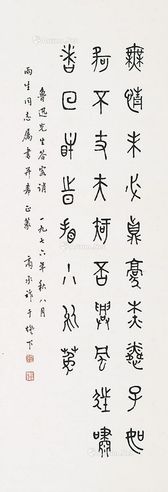 無情未必真豪桀憐子如
何不丈夫知否興風狂嘯
者回眸時看小於菟
魯迅先生答客誚 一九七六年秋八月
雨生同志屬書并希正篆 商承祚于燈下